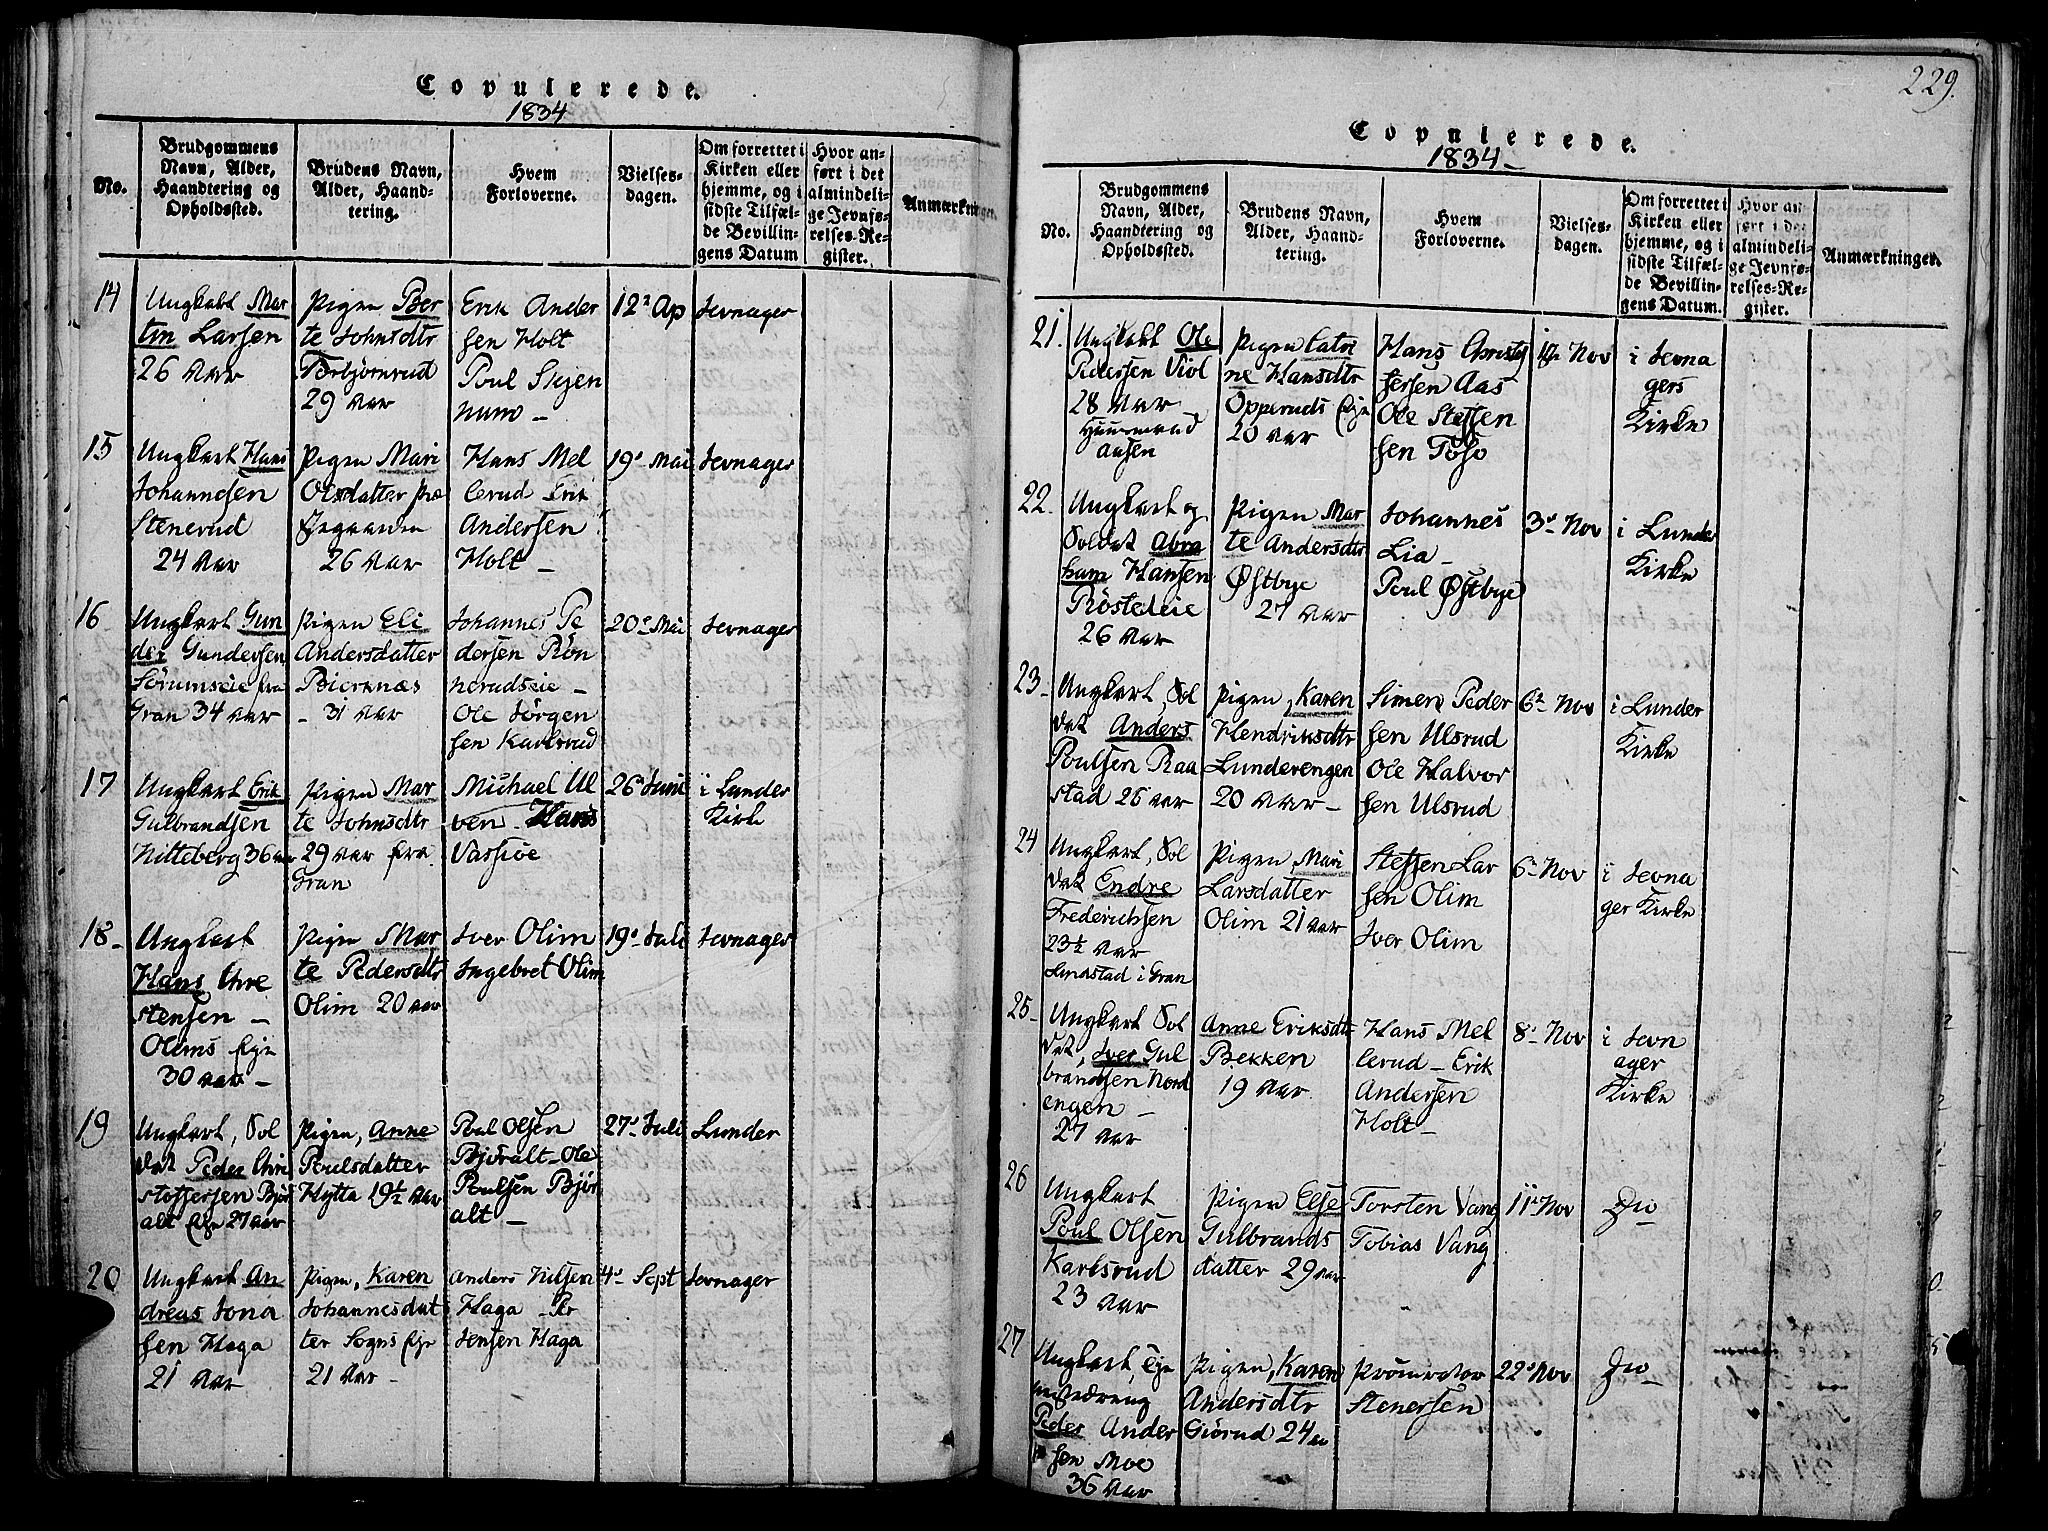 Copulerede.
1834
No.
Brudgommens
Navn, Alder,
Haandtering og
Opholdssted.
Brudens Navn,
Alder, Haand-
tering.
Hvem
Forloverne.
Vielses-
dagen.
Om forrettet i
Kirken eller
hjemme, og i
sidste Tilfæl-
de Bevillin-
gens Datum
Hvor an-
ført i det
almindeli-
ge Jevnfø-
relses-Re-
gister.
Anmærkninger.
14
Ungkarl Mar
tin Larsen
26 Aar
Pigen Ber
te Johnsdtr
Torbjørnrud
29 Aar
Erik Ander
sen Holt
Poul Skjen
num –
12te Ap
Jevnager
15
Ungkarl Hans
Johannesen
Stenerud
24 Aar
Pigen Mari
Olsdatter
26 Aar
Hans Mel
lerud Erik
Andersen
Holt –
19de Mai
Jevnager
16
Ungkarl Gun
der Gundersen
Sørumseie fra
Gran 34 Aar
Pigen Eli
Andersdatter
Bierknæs
– 31 Aar
Johannes Pe
dersen Røn
nerudseie –
Ole Jørgen
sen Karlsrud
20de Mai
Jevnager
17
Ungkarl Erik
Gulbrandsen
Nitteberg 36 Aar
Pigen Mar
te Johnsdtr
29 Aar fra
Gran
Michael Ul
ven – Hans
Vasiøe
26de Juni
i Lunder
Kirke
18 –
Ungkarl
Hans Chre
stensen –
Olims Eje
30 Aar –
Pigen Mar
te Pedersdtr
Olim 20 Aar
Iver Olim
Ingebret Olim
19de Juli
Jevnager
19
Ungkarl, Sol
dat Peder Chri
stoffersen Bjør
alt Eje 27 Aar
Pigen, Anne
Poulsdatter
Hytta 19½ Aar
Poul Olsen
Bjøralt – Ole
Poulsen Bjør
alt –
27de Juli
Lunder
20
Ungkarl An
dreas Jona
sen Haga
21 Aar
Pigen, Karen
Johannesdat
ter Sogns Eje
21 Aar –
Anders Nilsen
Haga – Per
Jensen Haga
4de Sept
Jevnager
229.
Copulerede.
1834 –
No.
Brudgommens
Navn, Alder,
Haandtering og
Opholdssted.
Brudens Navn,
Alder, Haand-
tering.
Hvem
Forloverne.
Vielses-
dagen.
Om forrettet i
Kirken eller
hjemme, og i
sidste Tilfæl-
de Bevillin-
gens Datum.
Hvor an-
ført i det
almindeli-
ge Jevnfø-
relses-Re-
gister.
Anmærkninger.
21.
Ungkarl Ole
Pedersen Viol
28 Aar –
aasen
Pigen Catri
ne Hansdtr
Opperuds Eje
20 Aar
Hans Christof
fersen Aas
Ole Steffen
sen Töso
Nov
i Jevna
gers
Kirke
22.
Ungkarl og
Soldat Abra
ham Hansen
Røsteleie
26 Aar
Pigen Mar
te Andersdtr
Østbye
27 Aar
Johannes
Lia –
Poul Østbye
3de Nov
i Lunder
Kirke
23 –
Ungkarl, Sol
dat Anders
Poulsen Raa
stad 25 Aar
Pigen, Karen
Hendriksdtr
Lunderengen
20 Aar –
Simen Peder
sen Ulsrud
Ole Halvor
sen Ulsrud
6te Nov
i Lunder
Kirke
24
Ungkarl, Sol
dat Endre
Frederichsen
23½ Aar
Lundstad i Gran
Pigen, Mari
Larsdatter
Olim 21 Aar
Steffen Lar
sen Olim
Iver Olim
6te Nov
i Jevna
ger Kirke
25 –
Ungkarl Sol
dat, Iver Gul
brandsen Nord
engen –
27 Aar
Anne Eriksdtr
Bekken
19 Aar
Hans Mel
lerud – Erik
Andersen
Holt –
8de Nov
i Jevn
ager
Kirke
26
Ungkarl
Poul Olsen
Karlsrud
23 Aar
Pigen Else
Gulbrands
datter 29 Aar
Torsten Vang
Tobias Vang
11te Nov
Do
27
Ungkarl, Eje
Peder Ander
sen Moe
36 Aar
Pigen, Karen
Andersdtr
Giørud 24 Aar
Procurator
Stenersen
22de Nov
Do